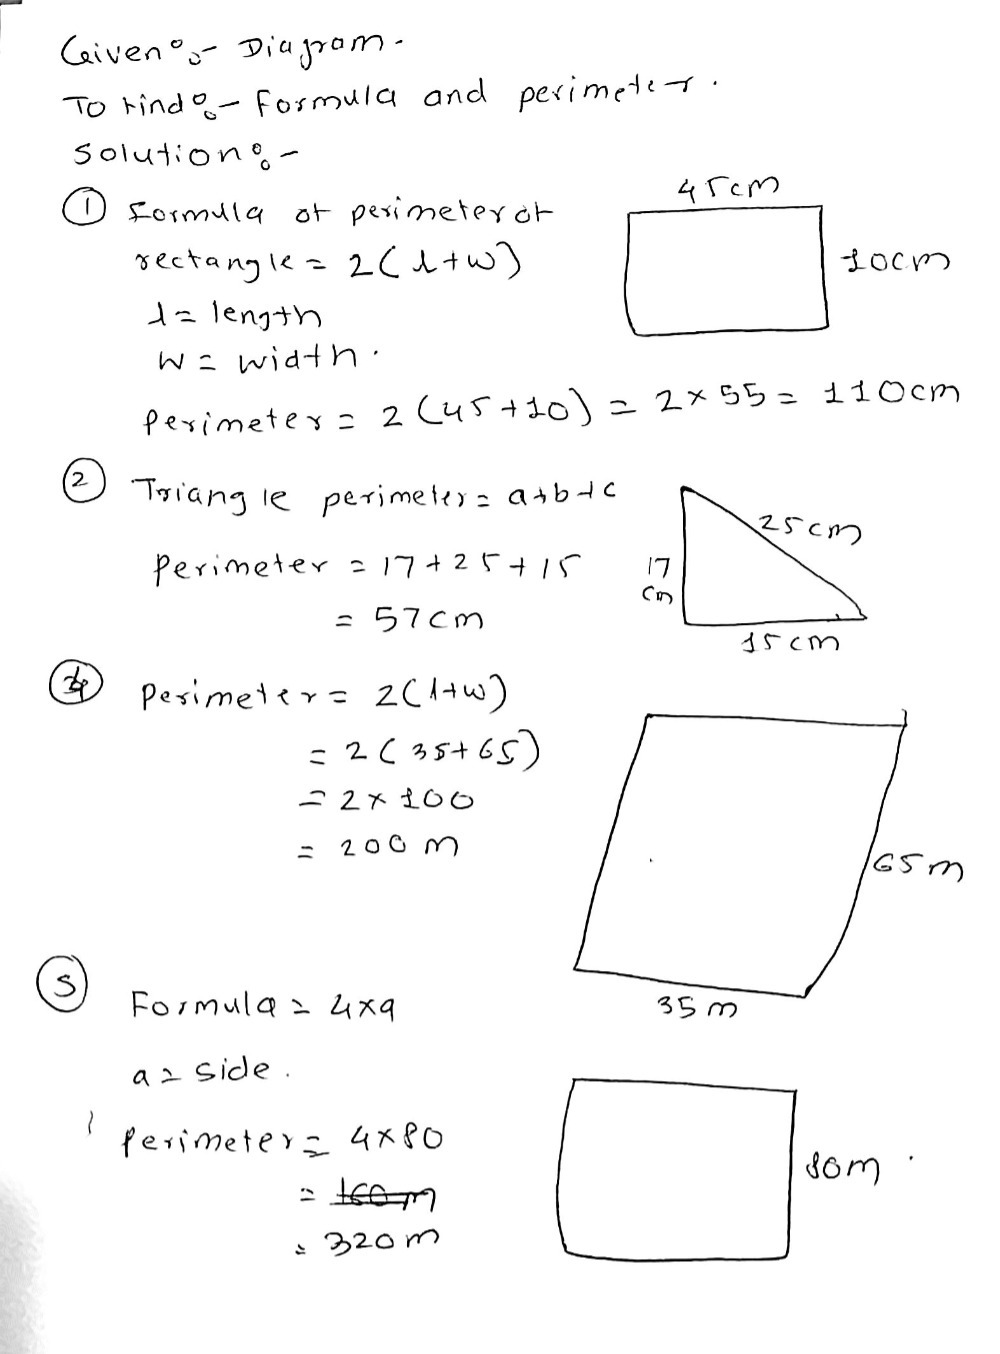 Given :- Diagram.
To find :- Formula and perimeter.
Solution :-
45cm
① Formula of perimeter of
rectangle = 2(l+w)
10cm
l = length
w = width.
Perimeter = 2(45+10) = 2×55 = 110cm
② Triangle perimeter = a+b+c
25cm
Perimeter = 17+25+15
17
cm
= 57cm
15cm
Perimeter = 2(l+w)
= 2(35+65)
= 2×100
= 200 m
65m
35 m
⑤ Formula = 4×a
a = side.
Perimeter = 4×80
80m.
= 160m
= 320m